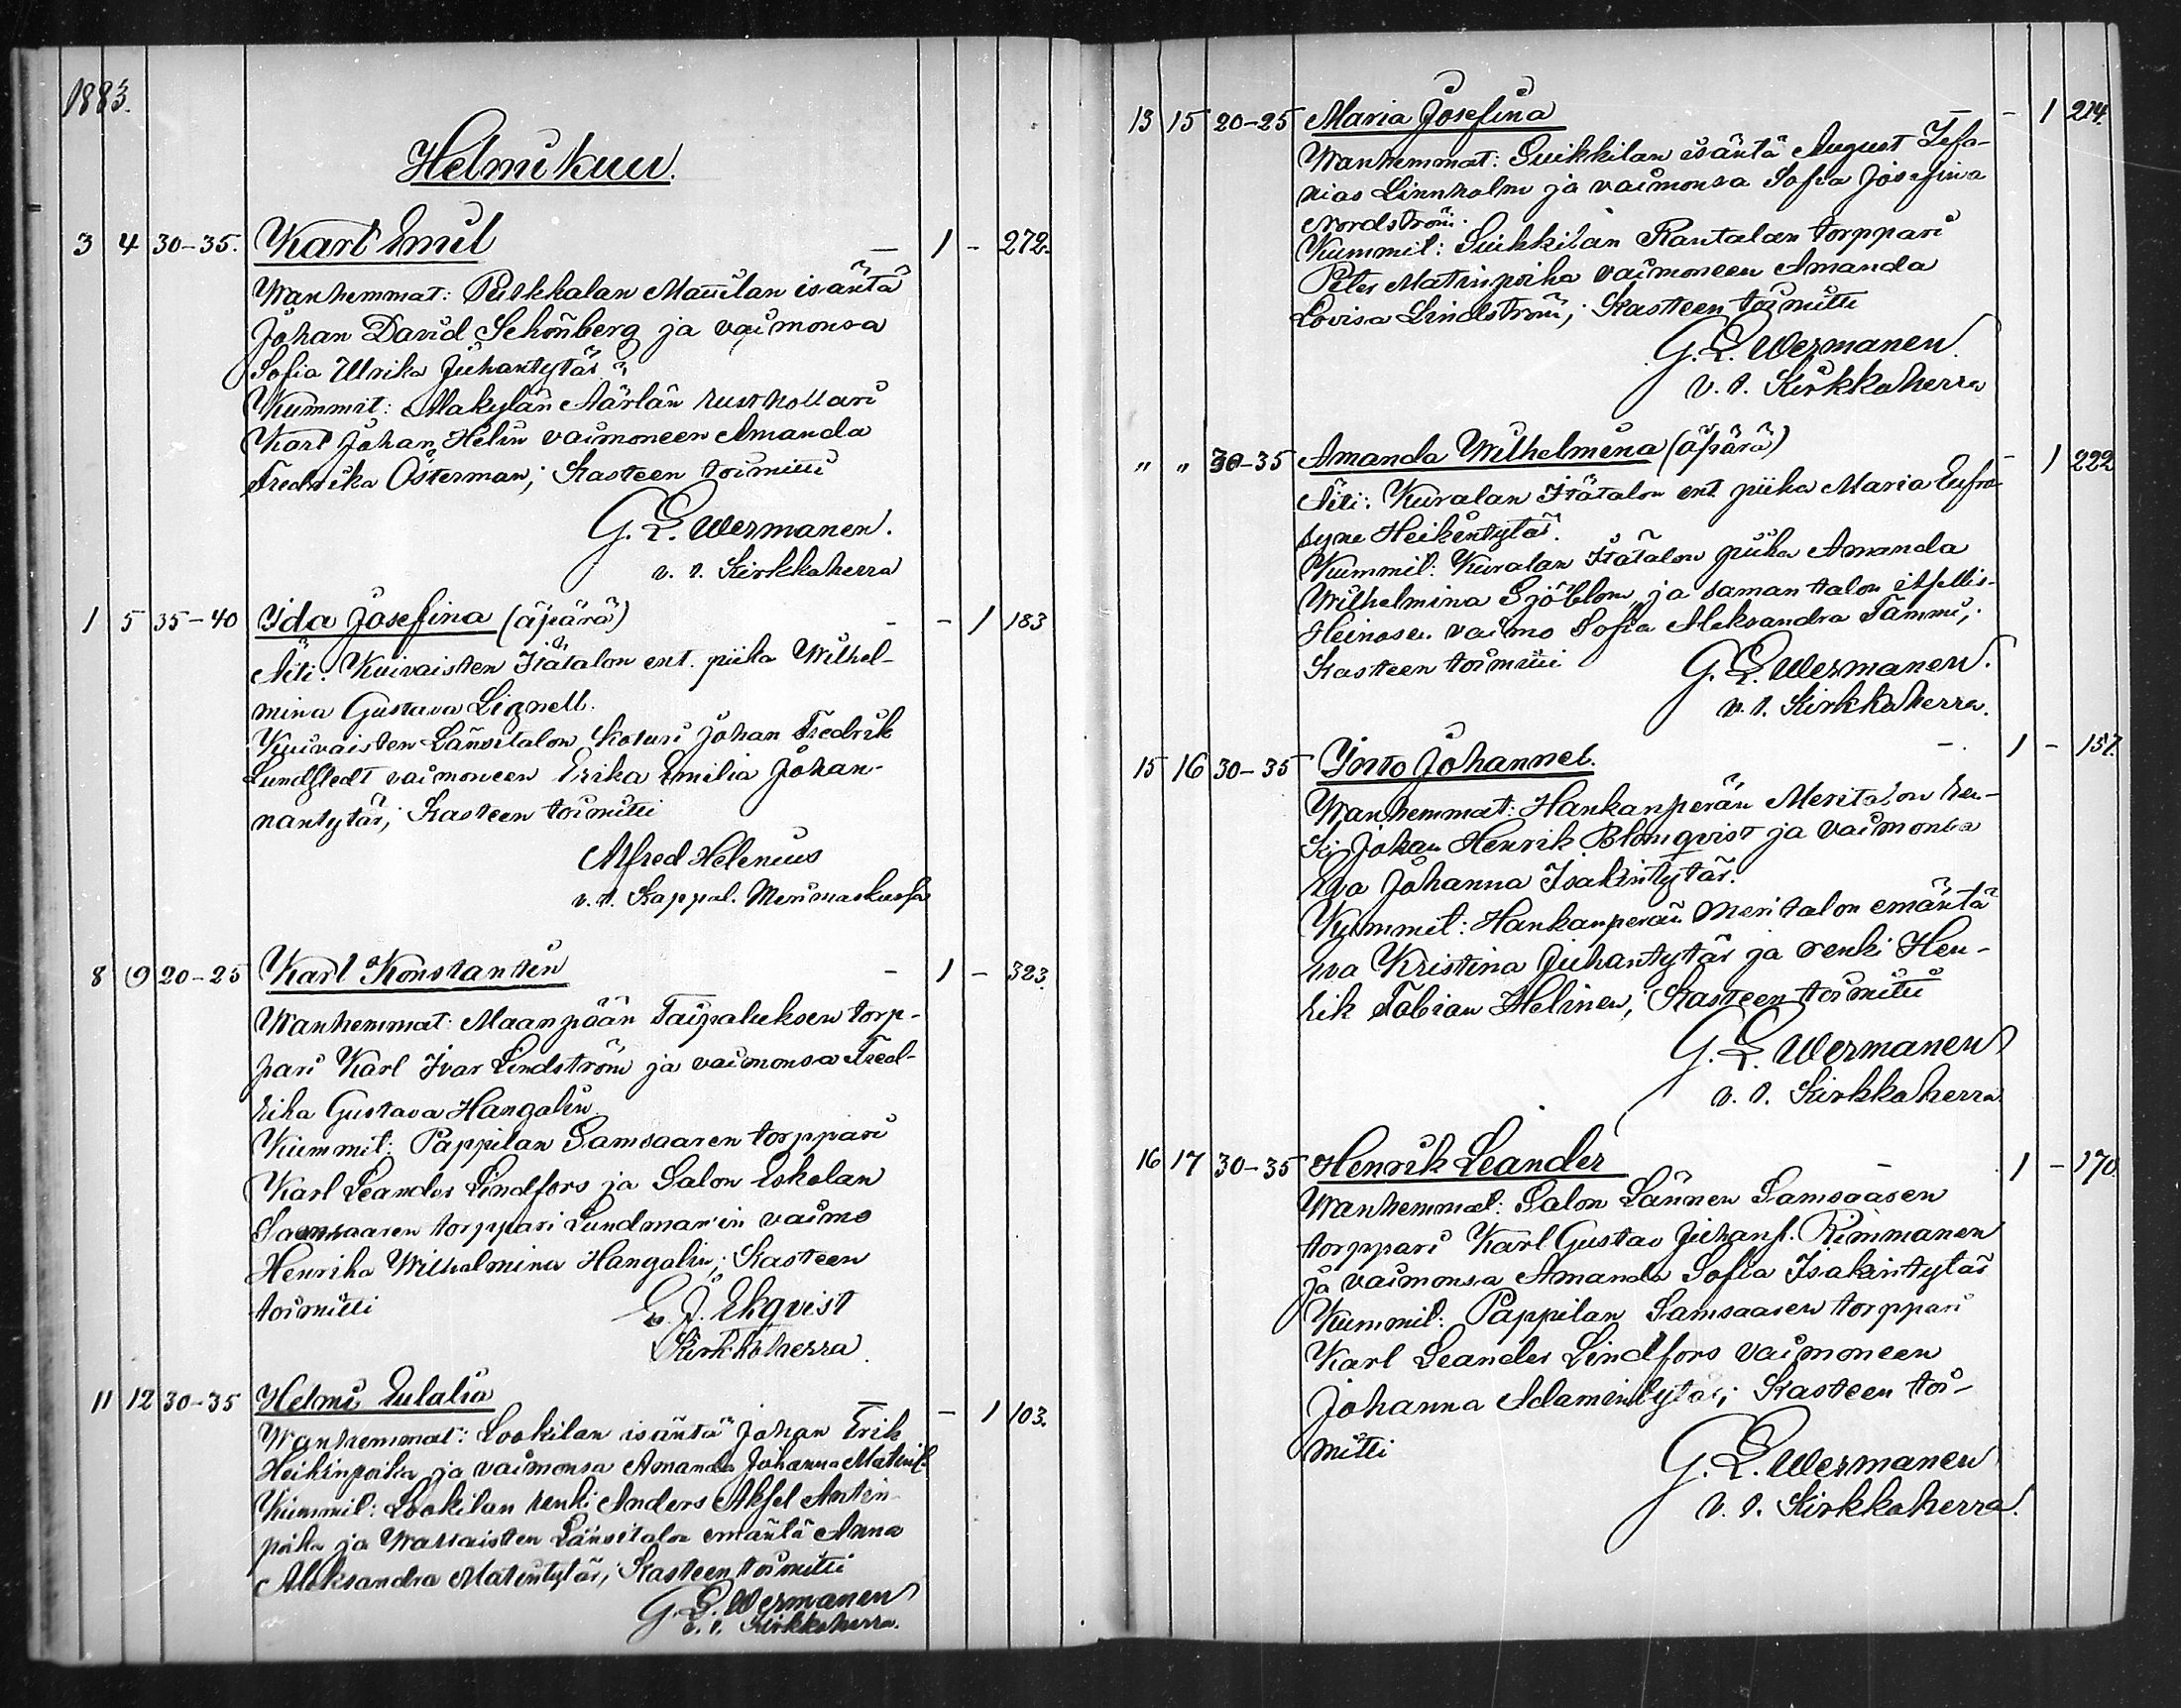 1883.
Helmikuu.
3 4 30-35. Karl Emil — 1 - 272.
Wanhemmat: Puskkalan Maurilan isäntä
Johan David Schönberg ja vaimonsa
Sofia Ulrika Juhantytär
Kummit: Makylän Äärlän rusthollari
Karl Johan Helin vaimoneen Amanda
Fredrika Österman; Kasteen toimitti
G. L. Wermanen.
v. t. Kirkkoherra
1 5 35-40 Ida Josefina (äpärä) - - 1 183
Äiti: Kuivaisten Itätalon ent. piika Wilhel-
mina Gustava Lignell.
Kuivaisten Länsitalon koturi Johan Fredrik
Lundstedt vaimoneen Erika Emilia Johan-
nantytär; Kasteen toimitti
Alfred Helenius
v. t. Kappal. Merimaskussa
8 9 20-25 Karl Konstantin - 1 - 323.
Wanhemmat: Maanpään Taipaluksen torp-
pari Karl Ivar Lindström ja vaimonsa Fred-
rika Gustava Hangelin
Kummit: Pappilan Samsaaren torppari
Karl Leander Lindfors ja Salon Eskolan
Samsaaren torppari Lundmanin vaimo
Henrika Wilhelmina Hangelin; Kasteen
toimitti G. J. Ekqvist
Kirkkoherra
11 12 30-35 Helmi Eulalia — - 1 103.
Wanhemmat: Lookilan isäntä Johan Erik
Heikinpoika ja vaimonsa Amanda Johanna Matint.
Kummit: Lookilan renki Anders Aksel Antin-
poika ja Warsaisten Länsitalon emäntä Anna
Aleksandra Matintytär; Kasteen toimitti
G. L. Wermanen
v. t. Kirkkoherra.
13 15 20-25 Maria Josefina — - 1 214.
Wanhemmat: Suikkilan isäntä August Sefa-
nias Linnholm ja vaimonsa Sofia Josefina
Nordström.
Kummit: Suikkilan Rantalan torppari
Peter Matinpoika vaimoneen Amanda
Lovisa Lindström; Kasteen toimitti
G. L. Wermanen
v. t. Kirkkoherra
" " 30-35 Amanda Wilhelmina (äpärä) - 1 222
Äiti: Kuralan Itätalon ent. piika Maria Eufro-
syne Heikintytär.
Kummit: Kuralan Itätalon piika Amanda
Wilhelmina Sjöblom ja saman talon itsellis-
Heinosen vaimo Sofia Aleksandra Tammi;
Kasteen toimitti G. L. Wermanen.
v. t. Kirkkoherra.
15 16 30-35 Into Johannes. - 1 - 157.
Wanhemmat: Hankanperän Meritalon ren-
ki Johan Henrik Blomqvist ja vaimonsa
Eva Johanna Isakintytär.
Kummit: Hankanperän Meritalon emäntä
Eva Kristina Juhantytär ja renki Hen-
rik Fabian Helinen; Kasteen toimitti
G. L. Wermanen
v. t. Kirkkoherra
16 17 30-35 Henrik Leander - 1 - 170.
Wanhemmat: Salon Lännen Samsaaren
torppari Karl Gustav Juhanp. Rimmanen
ja vaimonsa Amanda Sofia Isakintytär
Kummit: Pappilan Samsaaren torppari
Karl Leander Lindfors vaimoneen
Johanna Adamintytär; Kasteen toi-
mitti G. L. Wermanen
v. t. Kirkkoherra.